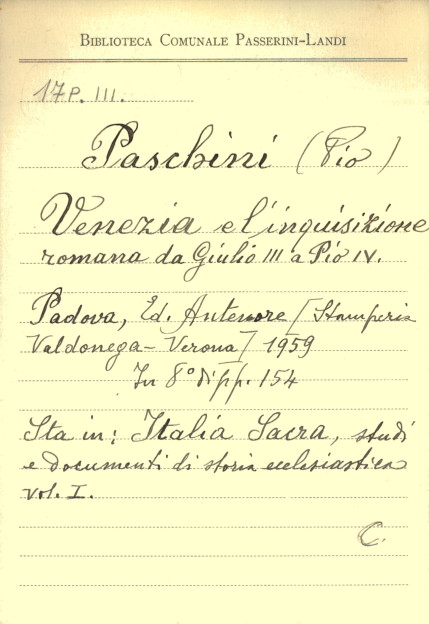 BIBLIOTECA COMUNALE PASSERINI-LANDI
17 P. III.
Paschini (Pio)
Venezia e l'inquisizione
romana da Giulio III a Pio IV.
Padova, Ed. Antenore [Stamperia
Valdonega - Verona] 1959
In 8° di pp. 154
Sta in: Italia Sacra, studi
e documenti di storia ecclesiastica
vol. I.
C.